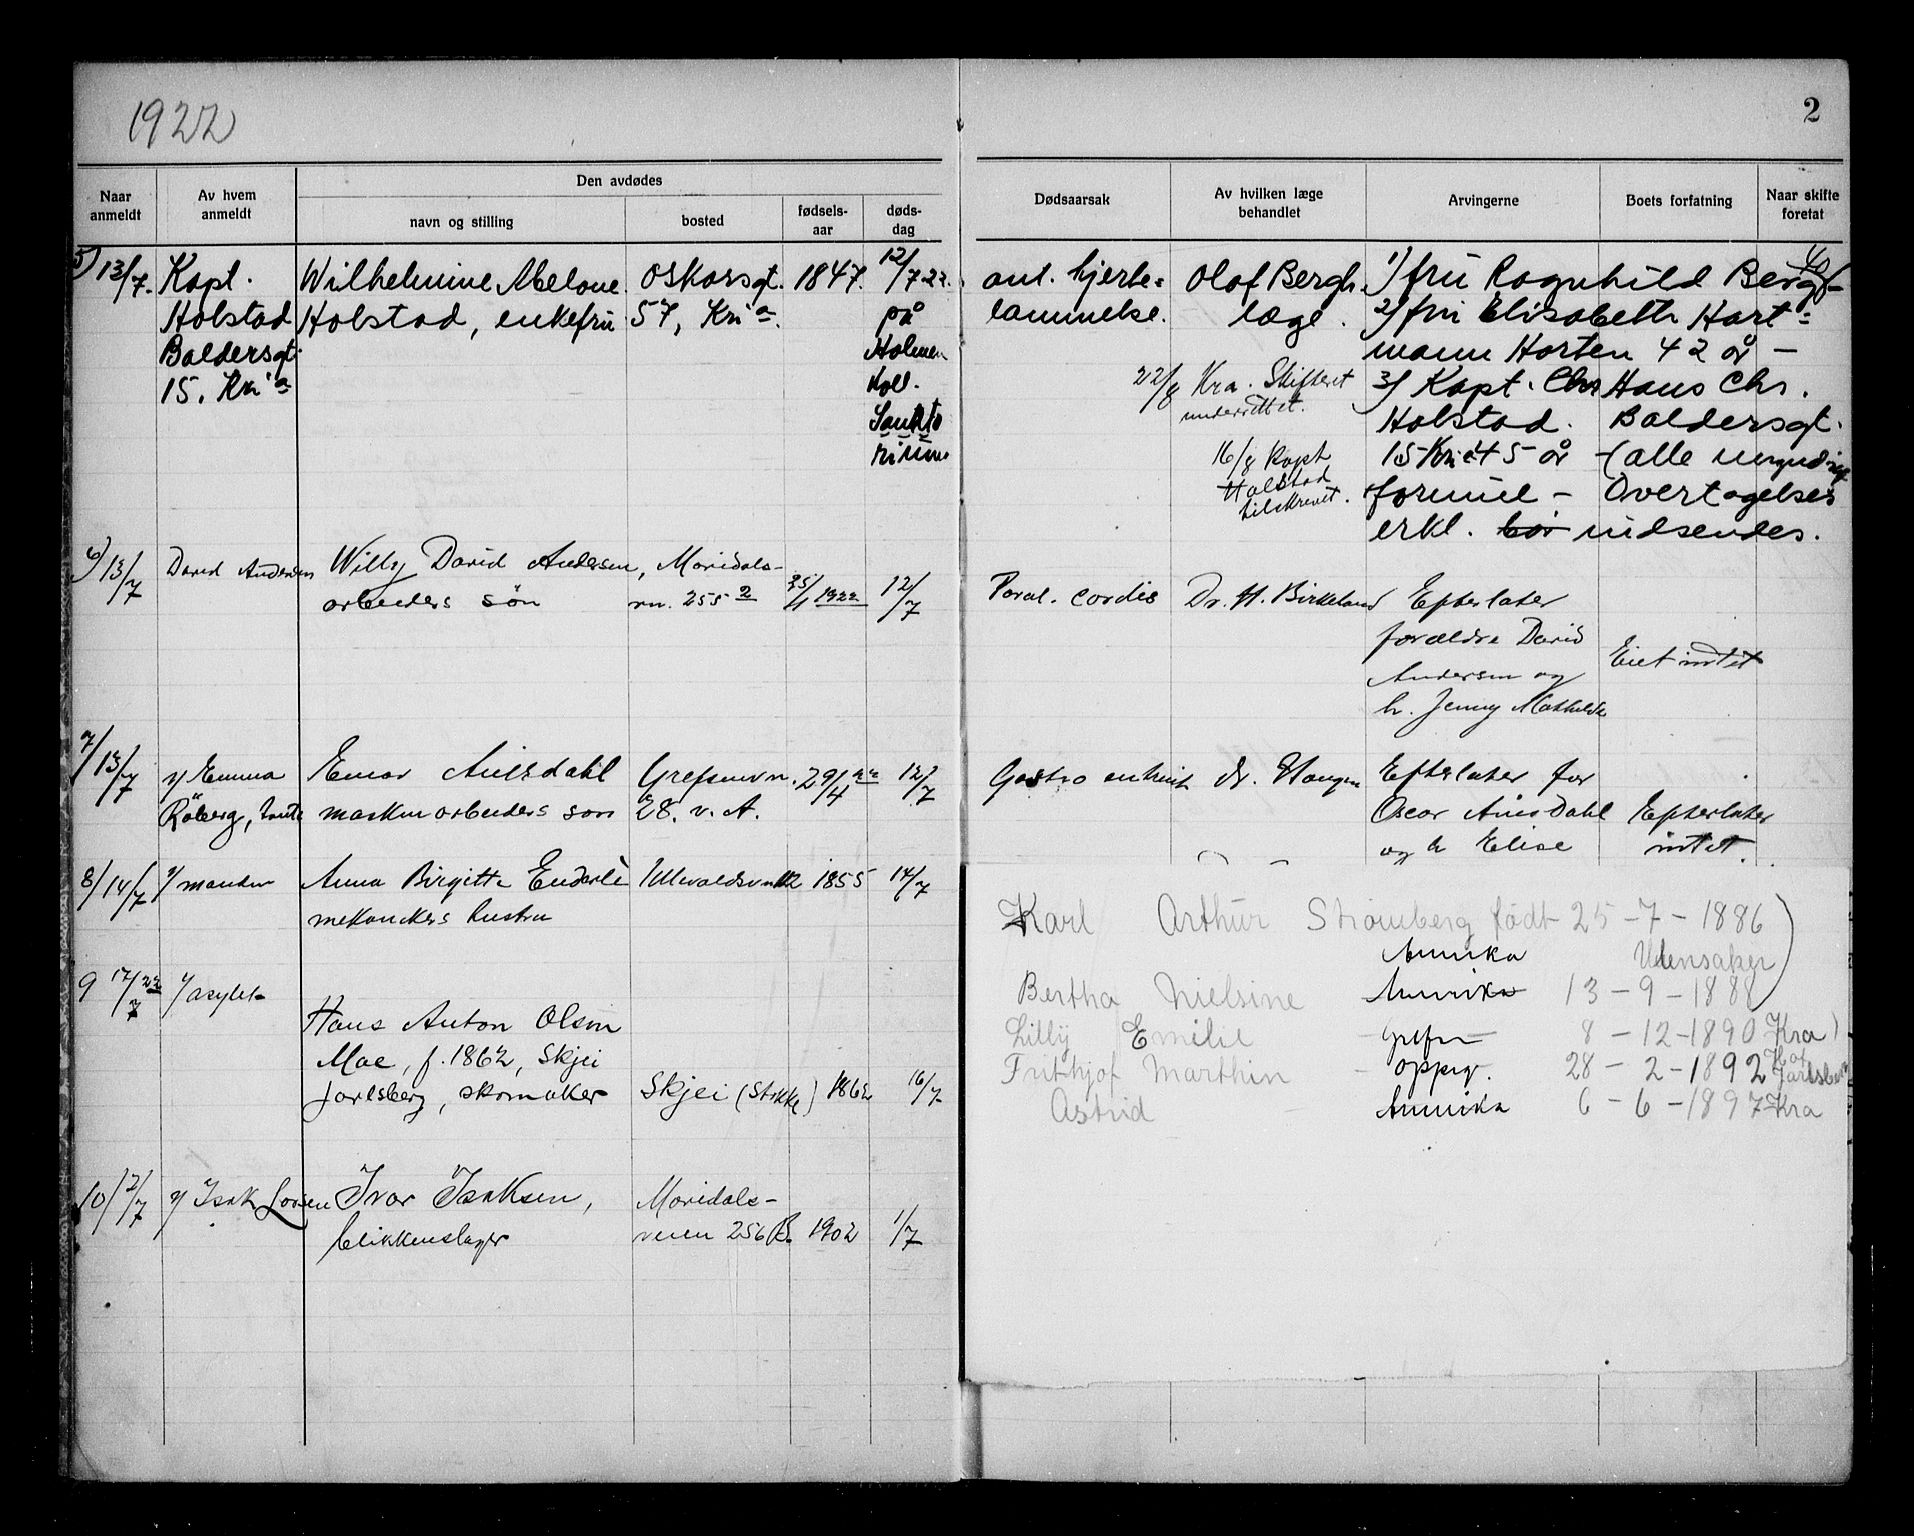 1922
2
Naar anmeldt
Av hvem anmeldt
Den avdødes
navn og stilling
bosted
fødsels-aar
døds-dag
Dødsaarsak
Av hvilken læge behandlet
Arvingerne
Boets forfatning
Naar skifte foretat
5) 13/7. Kapt. Wilhelmine Abelone Oskarsgt. 1847. 12/7 22.
Holstad Holstad, enkefru 57, Kria. på
Baldersgt. Holmen
15. Kria Koll.
Sanato
rium
ant. hjerte= Olof Bergh. 1) fru Ragnhild Bergh
lammelse. læge. 2) fru Elisabeth Hart=
mann Horten 42 år —
22/8 Kra. Skifteret 3) Kapt. Chr Hans Chr.
underrettet. Holstad. Baldersgt.
16/8 Kapt 15 Kria 45 år — (alle myndige
Holstad formue — Overtagelses
tilskrevet. erkl. bør indsendes.
6) 13/7 David Andersen Willy David Andersen, Maridals-
arbeiders søn vn. 255 2 25/1 1922 12/7
Paral. cordis Dr. H. Birkeland Efterlater
forældre David
Andersen og Eiet intet
h. Jenny Mathilde
7/ 13/7 v/ Emma Einar Aulsdahl Grefsenvn. 29/4 22 12/7
Røberg, tante maskinarbeiders søn 28. v. A.
Gastro enterit Dr. Haugen Efterlater for
Oscar Aulsdahl Efterlater
og h Elise intet.
8/ 14/7 v/ manden Anna Birgitte Enderle Ullevaldsvn 112 1855 14/7
mekanikers hustru
9 17/7 22 v/ asylet
Hans Anton Olsen
Moe, f. 1862, Skjei
Jarlsberg, skomaker Skjei (Stokke) 1862 16/7
10/ 12/7 v/ Isak Larsen Ivar Isaksen, Maridals-
blikkenslager veien 256 B. 1902 1/7
Karl Arthur Strømberg født 25 – 7 – 1886
Amerika Ullensaker
Bertha Nielsine Amerika 13 – 9 – 1888
Lilly Emilie – Grefsen – 8 – 12 – 1890 Kra
Frithjof Marthin – oppg. 28 – 2 – 1892 Jarlsberg
Astrid – Amerika 6 – 6 – 1897 Kra